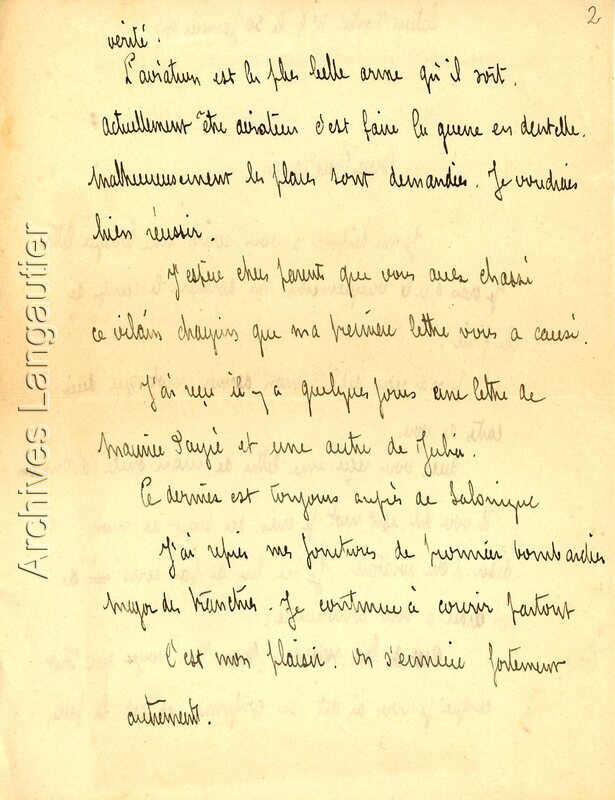 2
vérité.
L'aviation est la plus belle arme qu'il soit.
Actuellement être aviateur c'est faire la guerre en dentelle.
Malheureusement les places sont demandées. Je voudrais
bien réussir.
J'espère chers parents que vous avez chassé
ce vilain chagrin que ma première lettre vous a causé.
J'ai reçu il y a quelques jours une lettre de
Maurice et une autre de Julia.
Ce dernier est toujours auprès de Salonique
J'ai repris mes fonctions de premier bombardier
major des tranchées. Je continue à courir partout
C'est mon plaisir. On s'ennuie fortement
autrement.
Archives Langautier